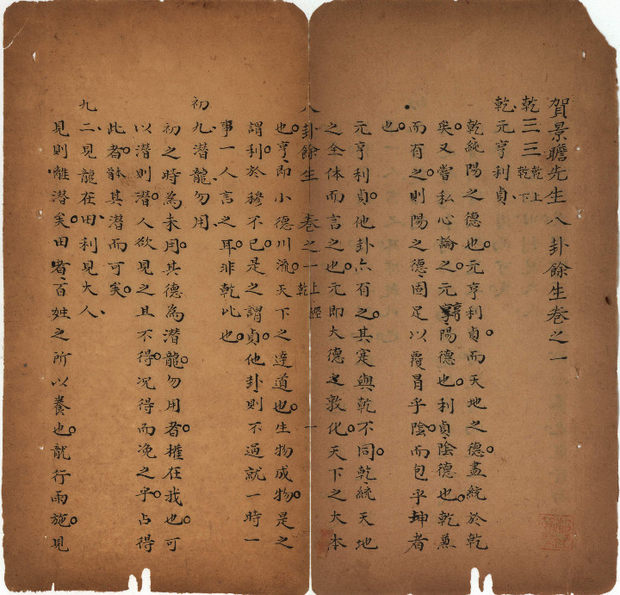 賀景瞻先生八卦餘生卷之一
乾三三乾上乾下
乾元亨利貞
乾純陽之德也。元亨利貞。而天地之德。盡統於乾
矣。又當私心論之。元亨。陽德也。利貞。陰德也。乾兼
而有之。則陽之德。固足以覆冒乎陰。而包乎坤者
也。
元亨利貞。他卦亦有之。其寔與乾不同。乾統天地
之全体而言之也。元即大德之敦化。天下之大本
八卦餘生 卷之一 上經 乾 一
也。亨、即小德川流。天下之達道也。生物成物。是之
謂利。於穆不已。是之謂貞。他卦則不過就一時一
事一人言之耳。非乾比也。
初九潛龍勿用
初之時為未用。其德為潛龍。勿用者。權在我也。可
以潛則潛。人欲見之且不得。况得而浼之乎。占得
此者。其潛而可矣。
九二見龍在田利見大人
見則離潛矣。田者。百姓之所以養也。龍行雨施。見